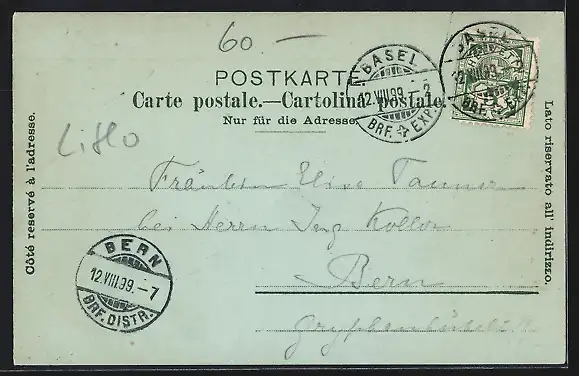 60.—
POSTKARTE
Carte postale.—Cartolina postale.
Nur für die Adresse.
Côté reservé à l'adresse.
Lato riservato all' indirizzo.
BASEL
12.VIII.99.–2
BRF. EXP.
BASEL
12.VIII.99
BRF. EXP.
HELVETIA
Litho
Fräulein Elise Tanner
bei Herrn Ing Koller
Bern
BERN
12.VIII.99.–7
BRF. DISTR.